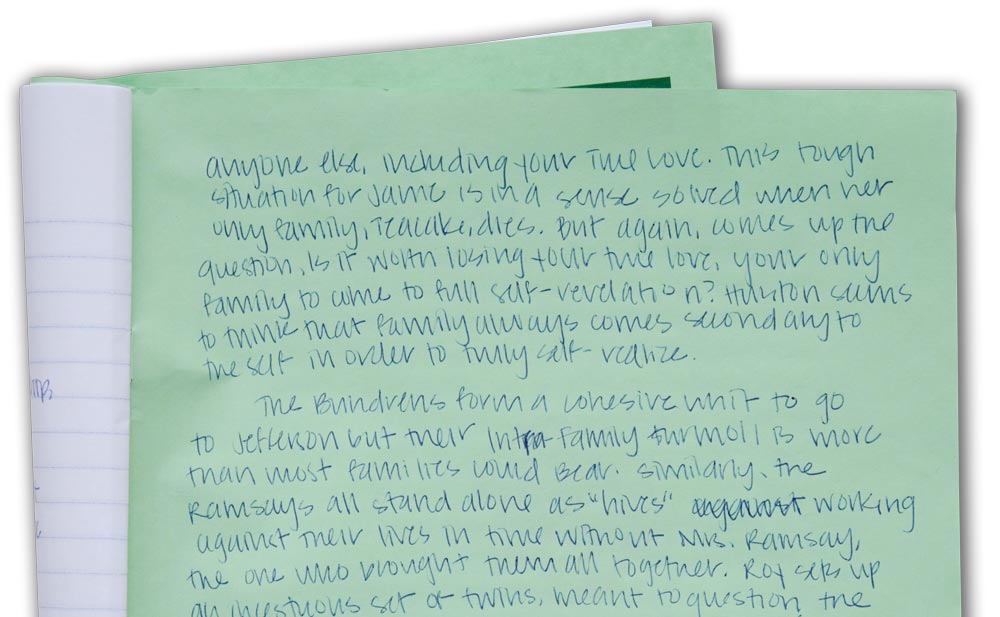 anyone else, including your true love. This tough
situation for Janie is in a sense solved when her
only family, Teacake, dies. But again, comes up the
question, is it worth losing your true love, your only
family to come to full self-revelation? Hurston seems
to think that family always comes secondary to
the self in order to fully self-realize.
The Bundrens form a cohesive unit to go
to Jefferson but their intra-family turmoil is more
than most families could bear. Similarly, the
Ramsays all stand alone as "hives" working
against their lives in time without Mrs. Ramsay,
the one who brought them all together. Roy sets up
an incestuous set of twins, meant to question the